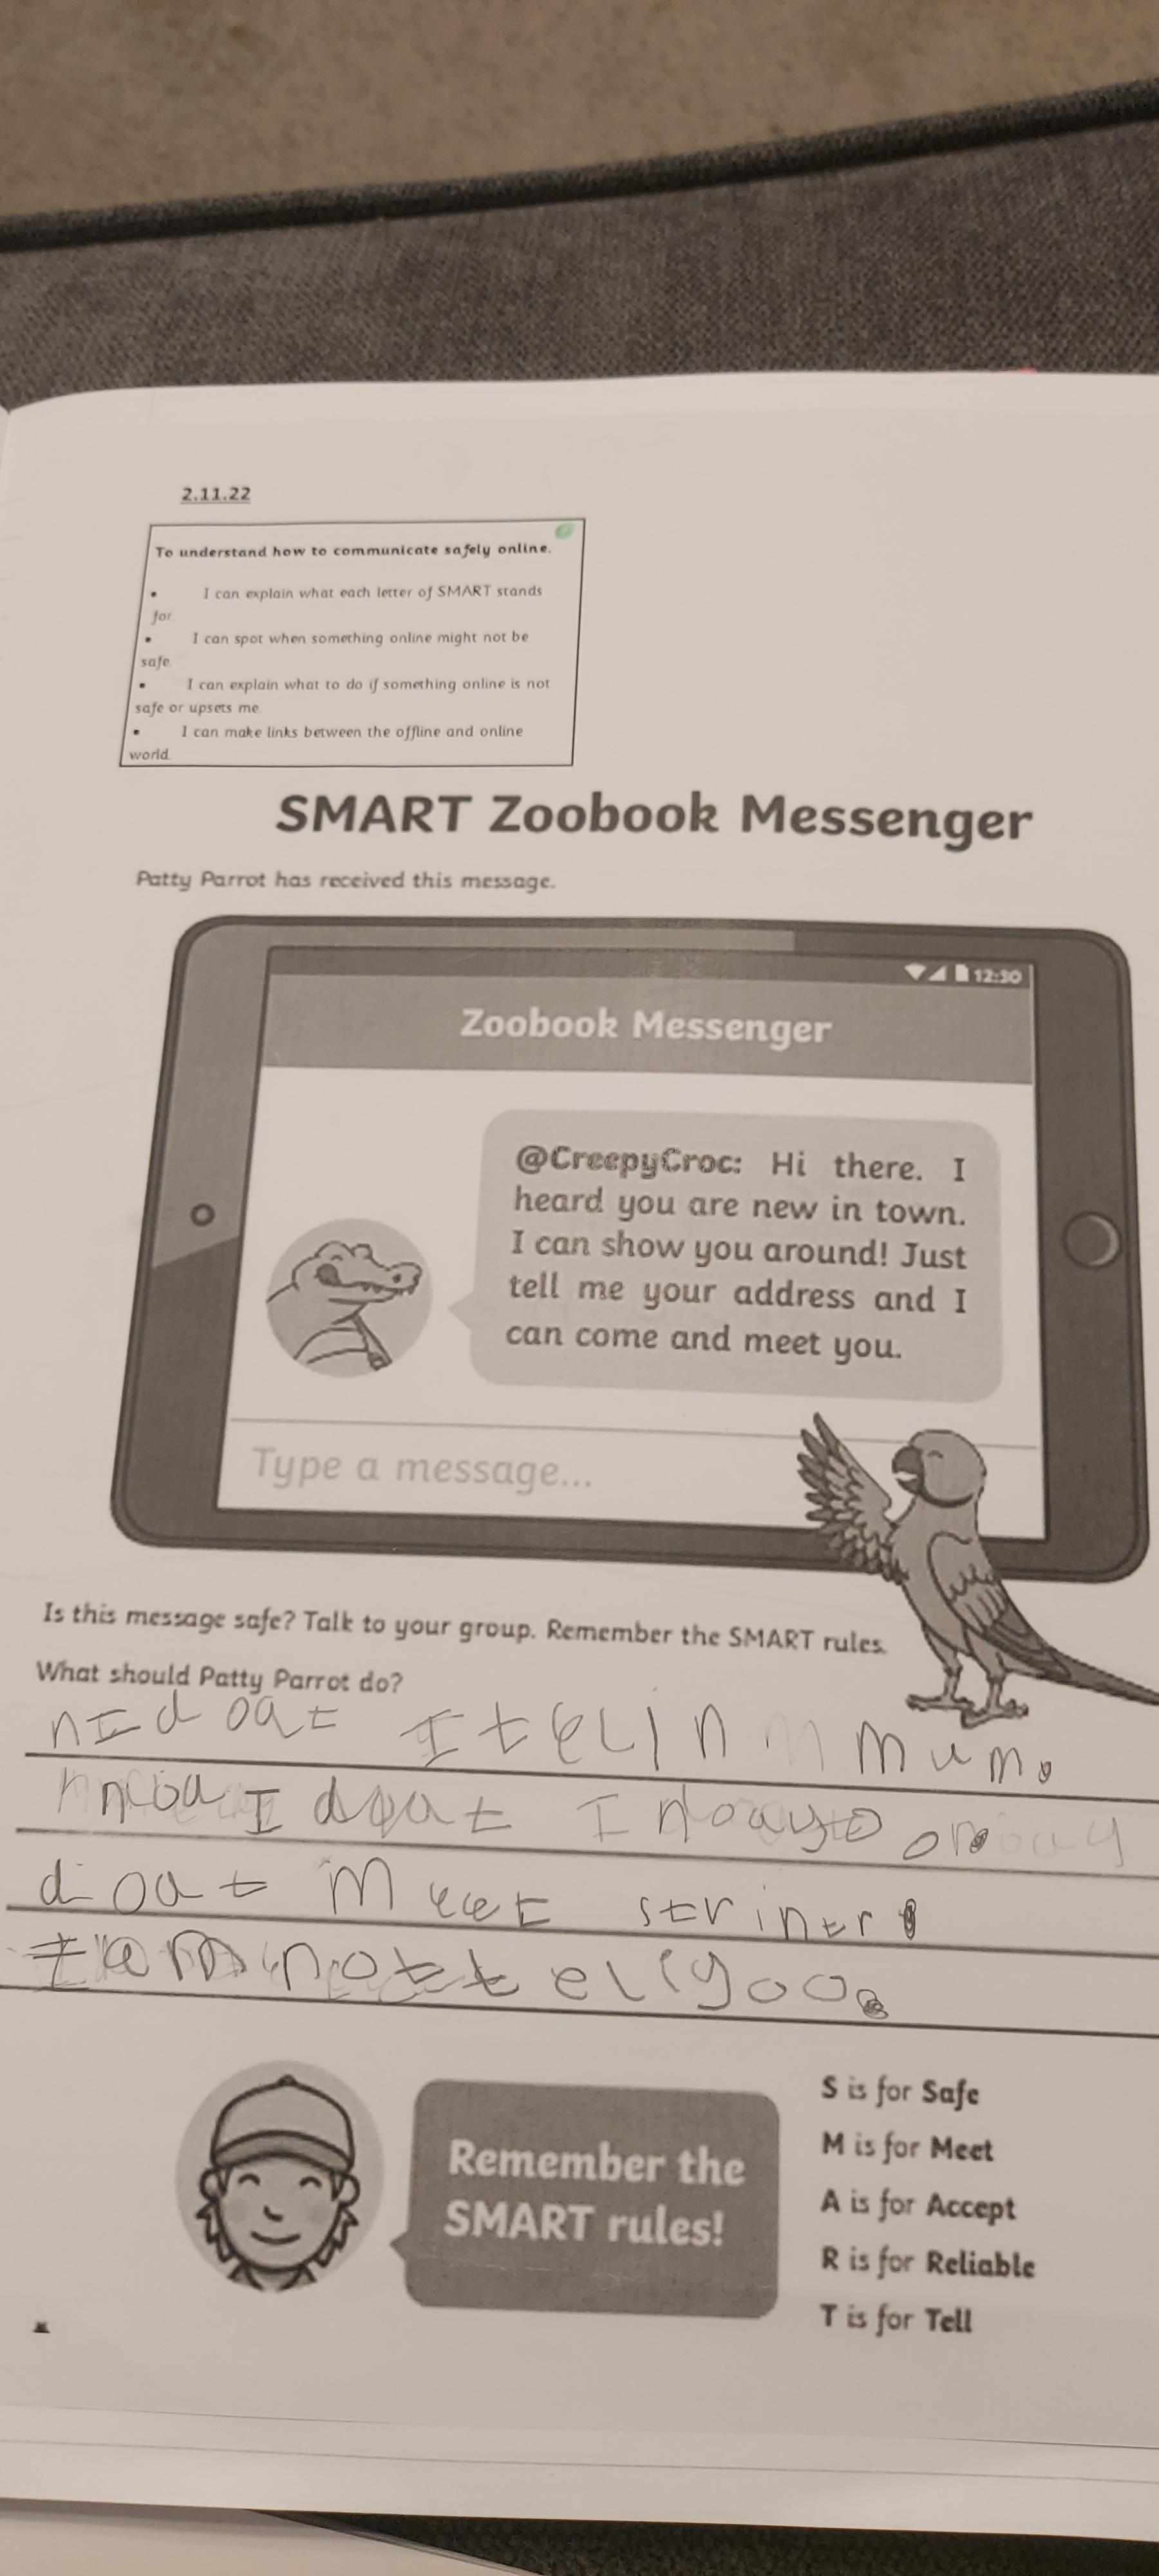 2.11.22
To understand how to communicate safely online.
• I can explain what each letter of SMART stands
for.
• I can spot when something online might not be
safe.
• I can explain what to do if something online is not
safe or upsets me.
• I can make links between the offline and online
world.
SMART Zoobook Messenger
Patty Parrot has received this message.
12:30
Zoobook Messenger
@CreepyCroc: Hi there. I
heard you are new in town.
I can show you around! Just
tell me your address and I
can come and meet you.
Type a message...
Is this message safe? Talk to your group. Remember the SMART rules.
What should Patty Parrot do?
I mum.
I I
meet
I am not tell yoo.
Remember the
SMART rules!
S is for Safe
M is for Meet
A is for Accept
R is for Reliable
T is for Tell